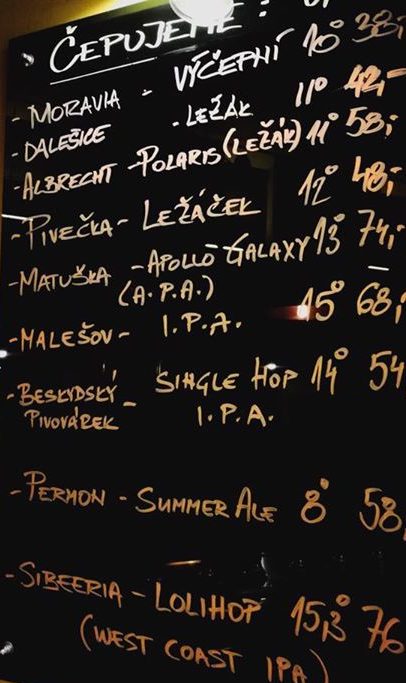 ČEPUJEME:
- MORAVIA - VÝČEPNÍ 10° 38,-
- DALEŠICE - LEŽÁK 11° 42,-
- ALBRECHT - POLARIS (LEŽÁK) 11° 58,-
- PIVEČKA - LEŽÁČEK 12° 48,-
- MATUŠKA - APOLLO GALAXY 13° 74,-
(A.P.A.)
- MALEŠOV - I.P.A. 15° 68,
- BESKYDSKÝ - SINGLE HOP 14° 54
PIVOVÁREK I.P.A.
- PERMON - SUMMER ALE 8° 58,
- SIBEERIA - LOLIHOP 15,3° 76
(WEST COAST IPA)